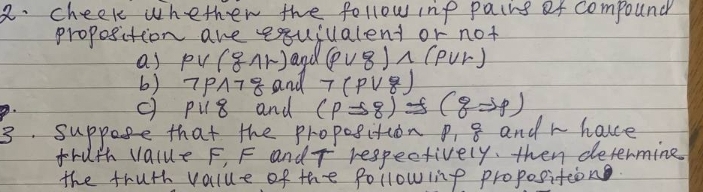 2. Check whether the following pairs of compound
proposition are equivalent or not
a) p∨(q∧r) and (p∨q) ∧ (p∨r)
b) ¬p∧¬q and ¬(p∨q)
c) p∨q and (p⇒q) ⇒ (q⇒p)
3. Suppose that the proposition p, q and r have
truth value F, F and T respectively. then determine
the truth value of the following proposition.